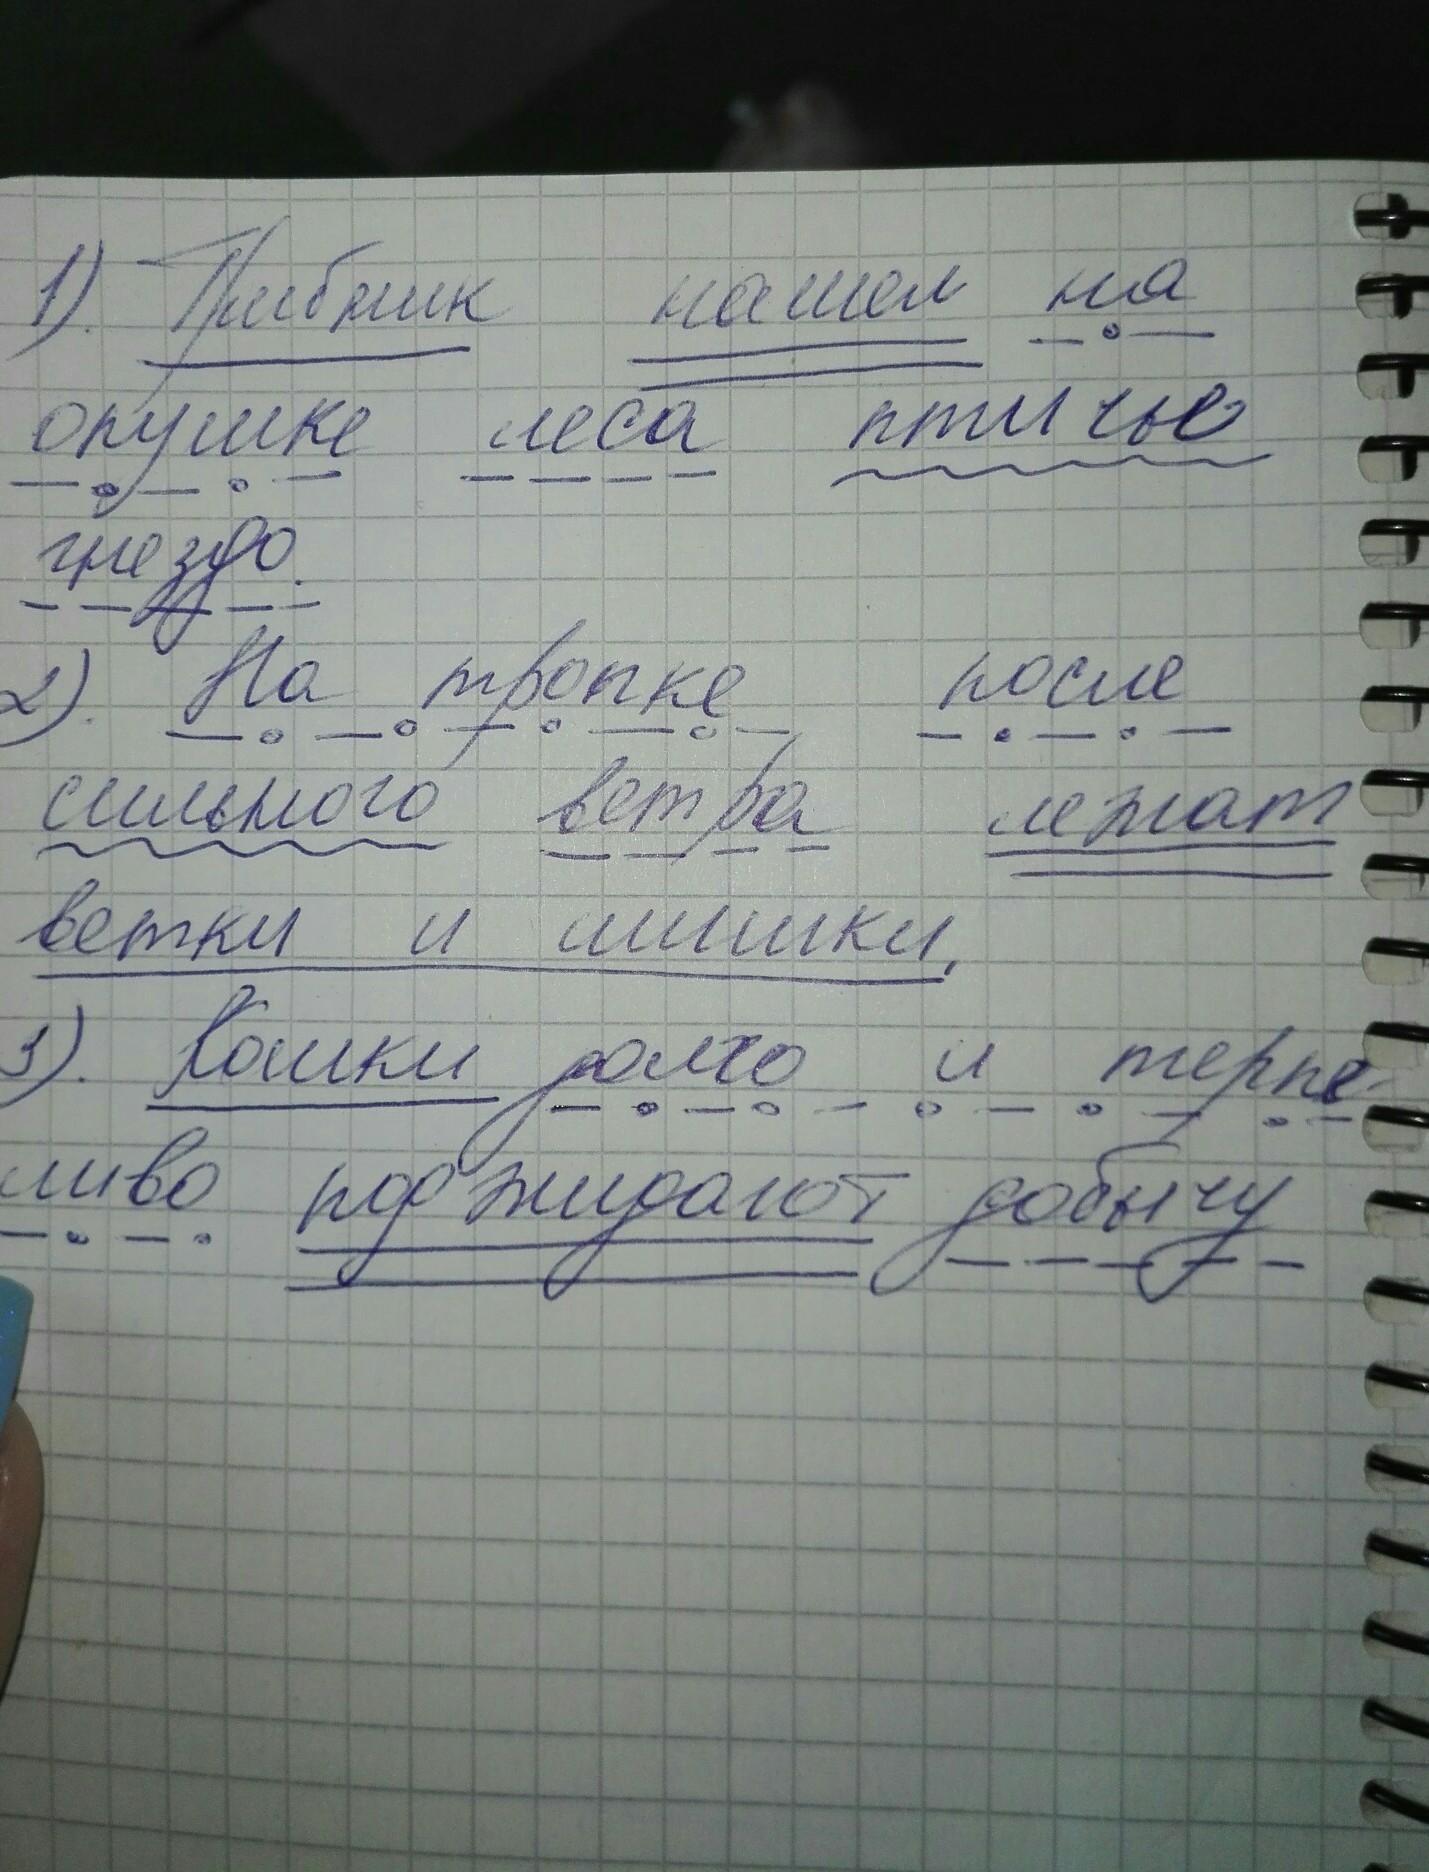 1). Грибник нашел на
опушке леса птичье
гнездо.
2). На тропке после
сильного ветра лежат
ветки и шишки.
3). Кошки долго и терпе-
ливо поджидают добычу